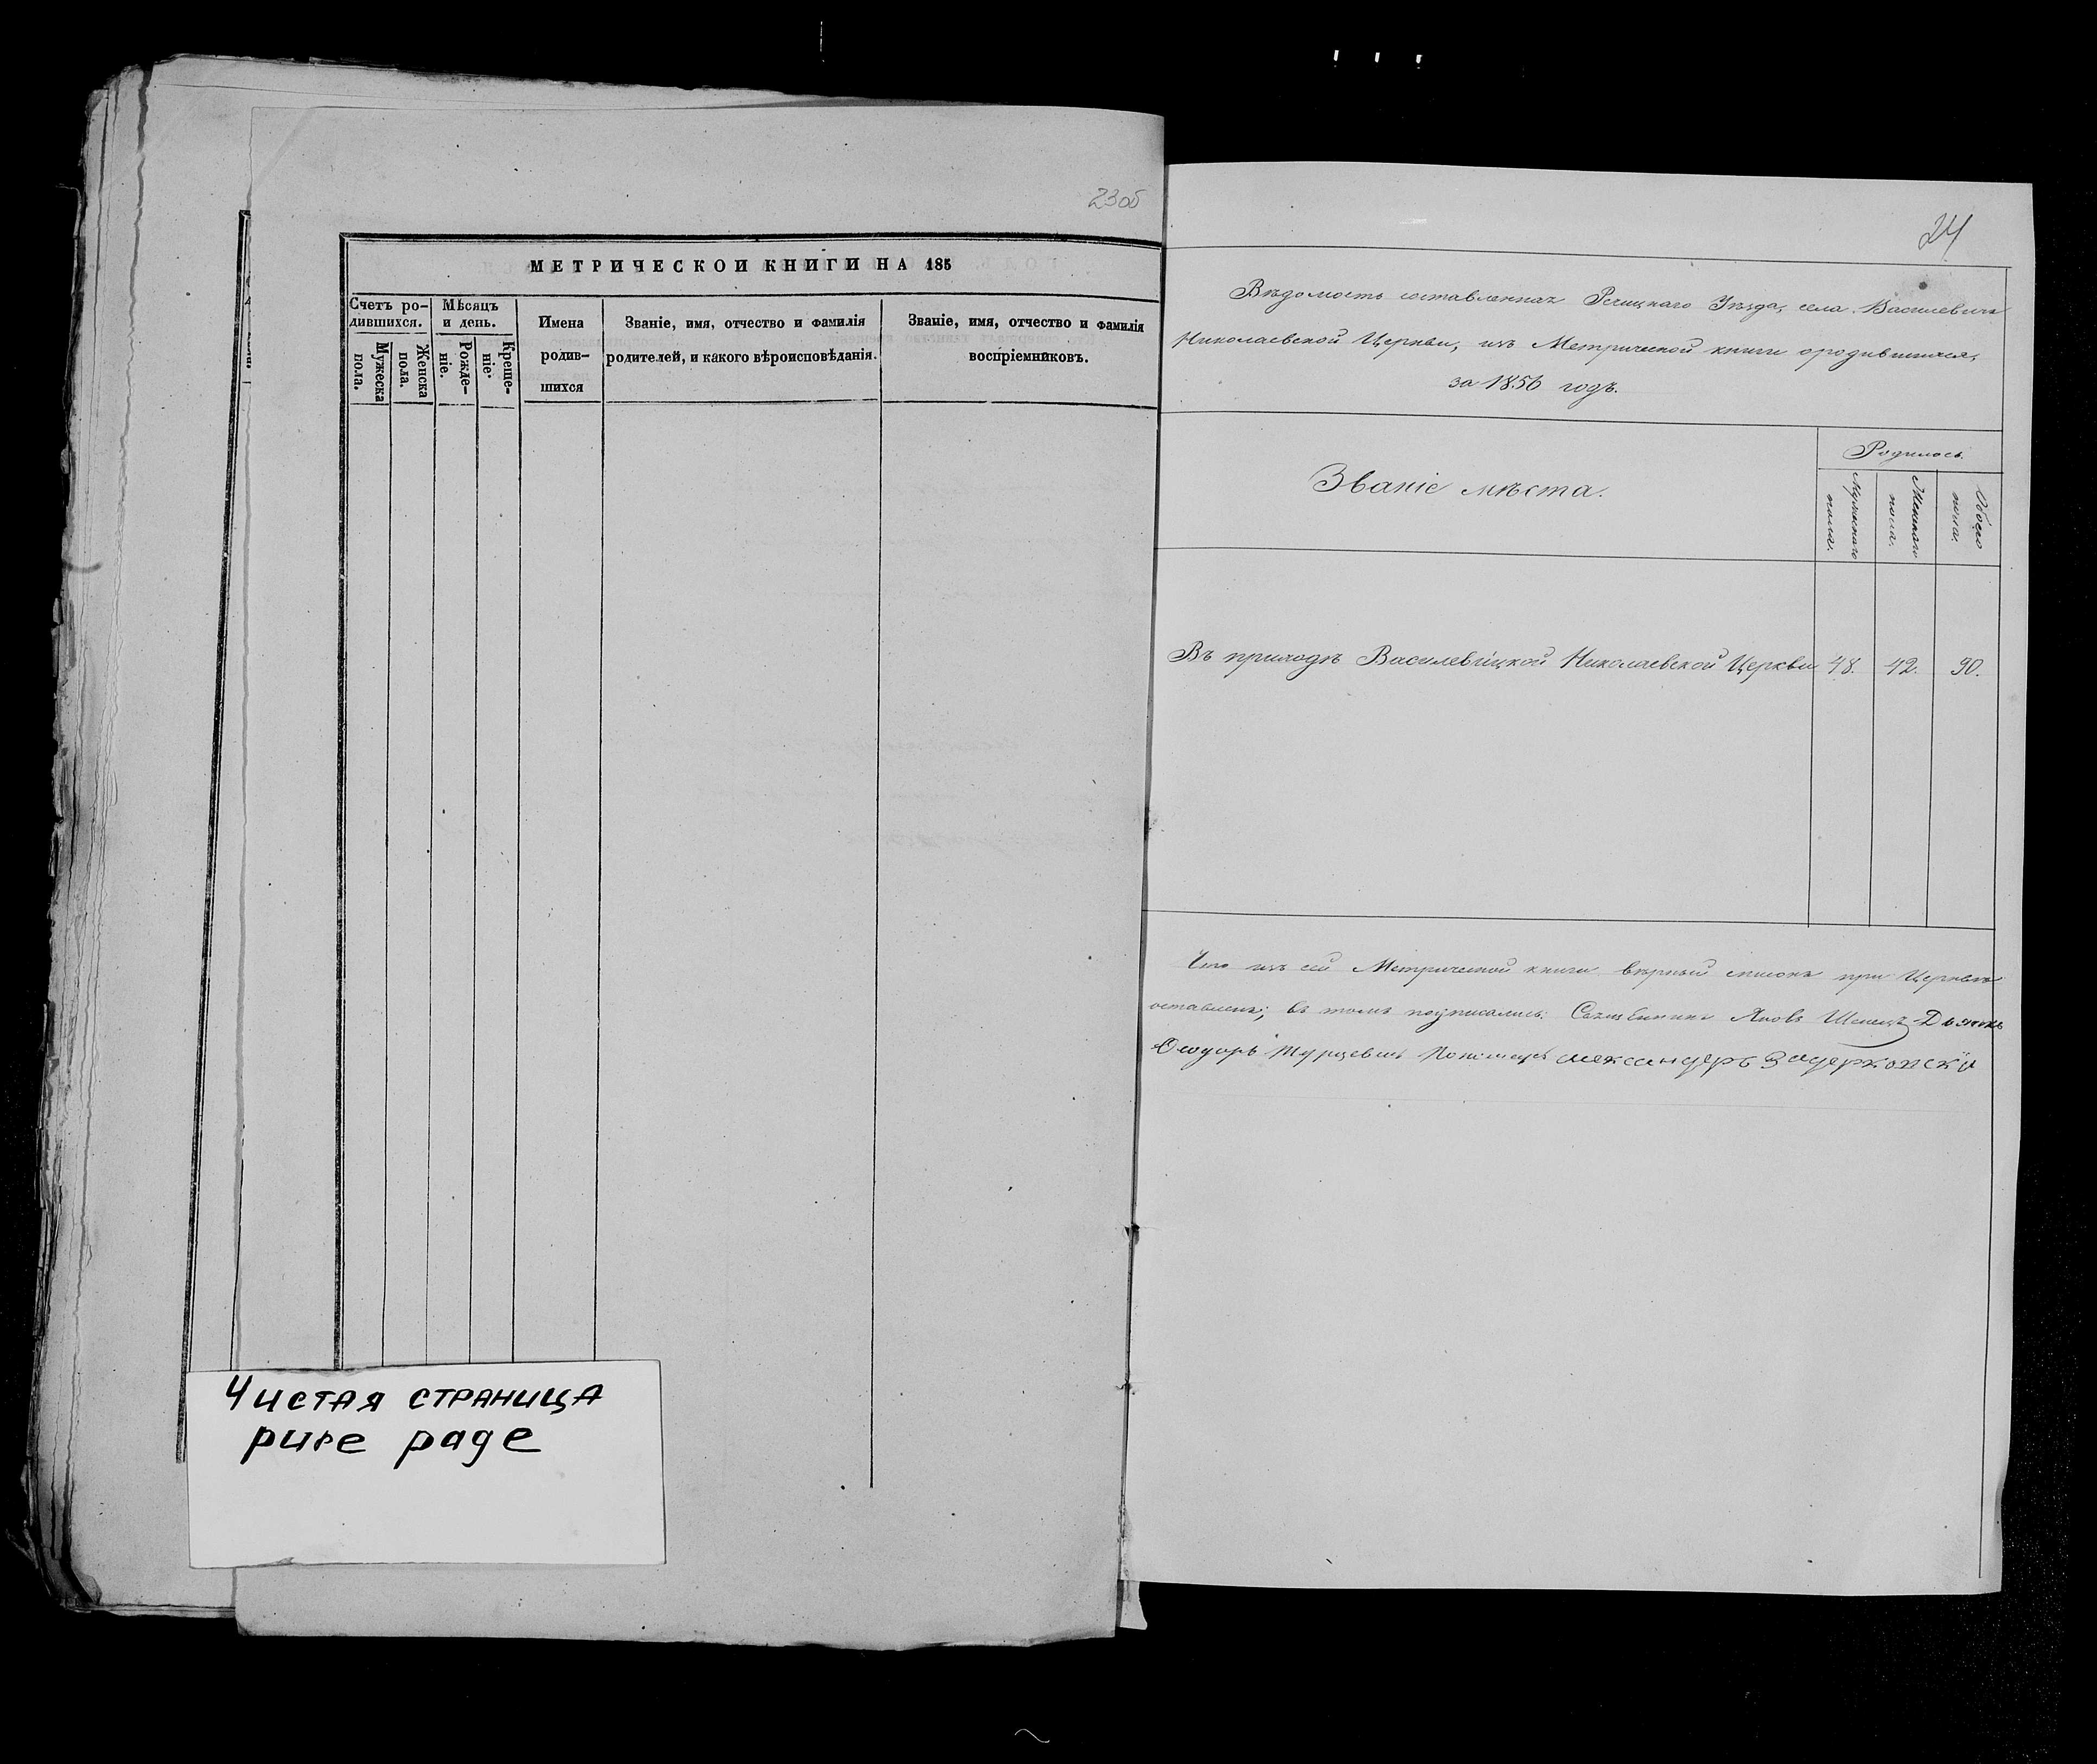 23об
МЕТРИЧЕСКОЙ КНИГИ НА 185
Счетъ ро-
дившихся.
Мужеска
пола.
Женска
пола.
Мѣсяцъ
и день.
Рожде-
ніе.
Креще-
ніе.
Имена
родив-
шихся
Званіе, имя, отчество и фамилія
родителей, и какого вѣроисповѣданія.
Званіе, имя, отчество и фамилія
воспріемниковъ.
Чистая страница
pure page
24
Вѣдомость составленная Рѣчицкаго Уѣзда, села Василевичъ
Николаевской Церкви, изъ Метрической книги о родившихся,
за 1856 годъ.
Званіе мѣста.
Родилось.
Мужескаго
пола.
Женскаго
пола.
Обоего
пола.
Въ приходѣ Василевицкой Николаевской Церкви 48. 42. 90.
Что изъ сей Метрической книги вѣрный списокъ при Церквѣ
оставленъ; въ томъ подписались: Священникъ Яковъ Шенецъ Дьячокъ
Ѳеодоръ Турцевичъ Пономарь Александеръ Задерковскій